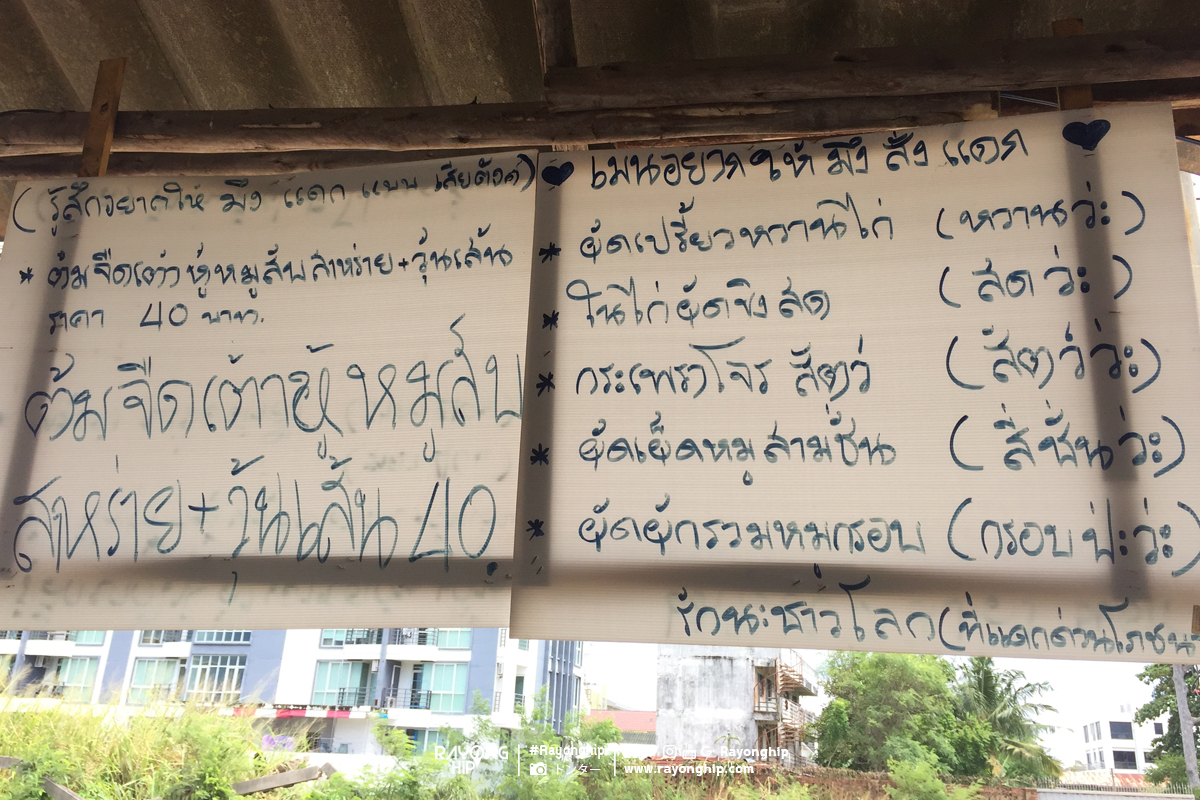 (รู้สึกอยากให้ มึง แดก แบบ เสียตังค์)
* ต้มจืดเต้าหู้หมูสับสาหร่าย+วุ้นเส้น
ราคา 40 บาท.
ต้มจืดเต้าหู้หมูสับ
สาหร่าย+วุ้นเส้น 40.
♥ เมนูอยากให้ มึง สั่ง แดก ♥
* ผัดเปรี้ยวหวานไก่ (หวานว่ะ)
* ในไก่ผัดขิงสด (สดว่ะ)
* กระเพราโจร สัตว์ (สัตว์ว่ะ)
* ผัดเผ็ดหมูสามชั้น (สี่ชั้นว่ะ)
* ผัดผักรวมหมูกรอบ (กรอบป่ะว่ะ)
รักนะชาวโลก (ที่แดกด่วน
RAYONG HIP
#Rayonghip
Rayonghip
www.rayonghip.com